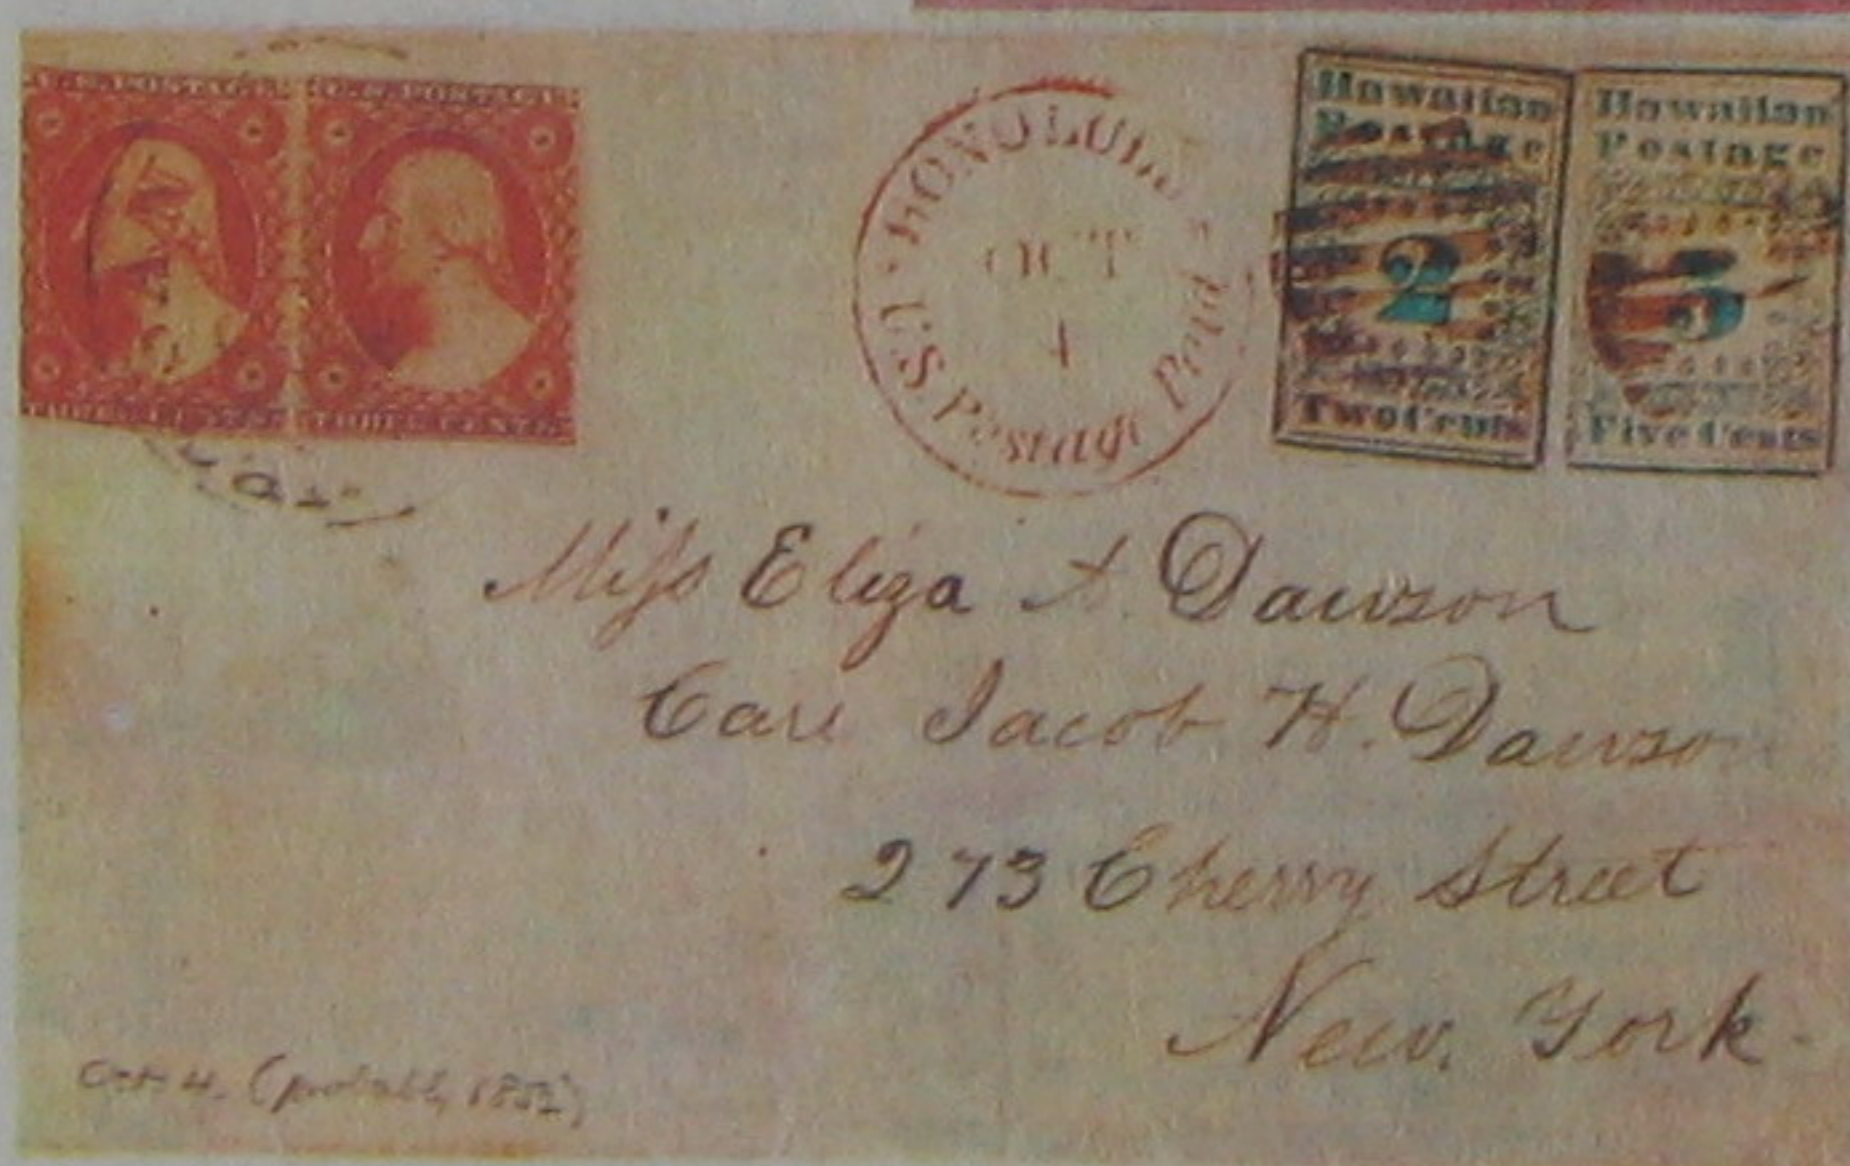 U.S. POSTAGE U.S. POSTAGE
THREE CENTS THREE CENTS
HONOLULU
OCT
4
U.S. Postage Paid
Hawaiian
Postage
2
Two Cents
Hawaiian
Postage
5
Five Cents
Miss Eliza A. Dawson
Care Jacob H. Dawson
273 Cherry Street
New. York.
Oct 4. (probably 1852)